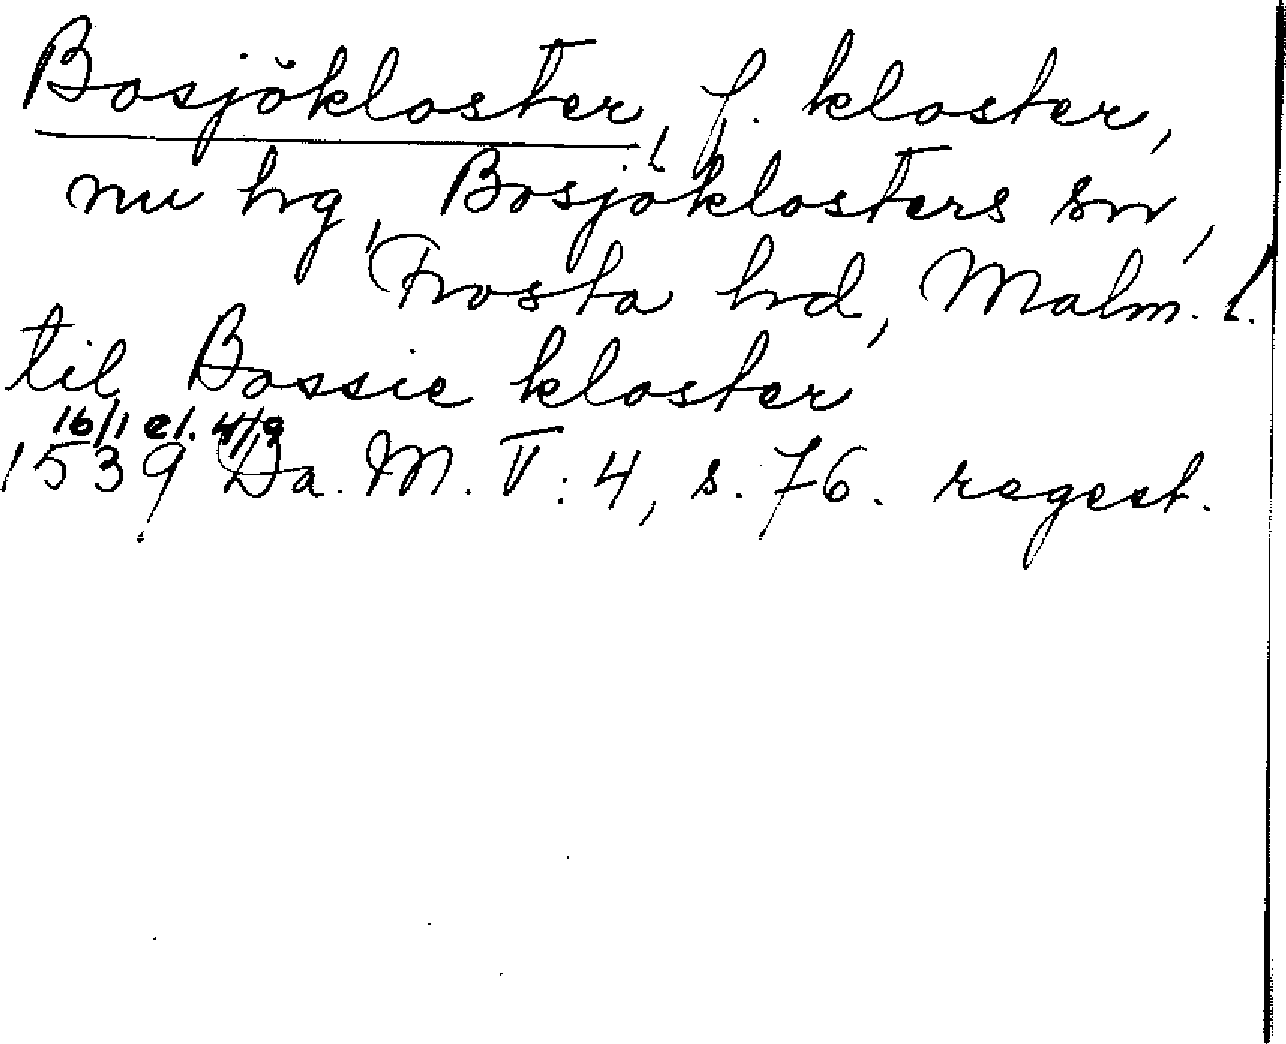 Bosjökloster, f. kloster,
nu hg, Bosjöklosters sn,
Frosta hd, Malm. l.
til Bossie kloster
16/1 el. 4/9
1539 Da. M. V: 4, s. 76. regest.